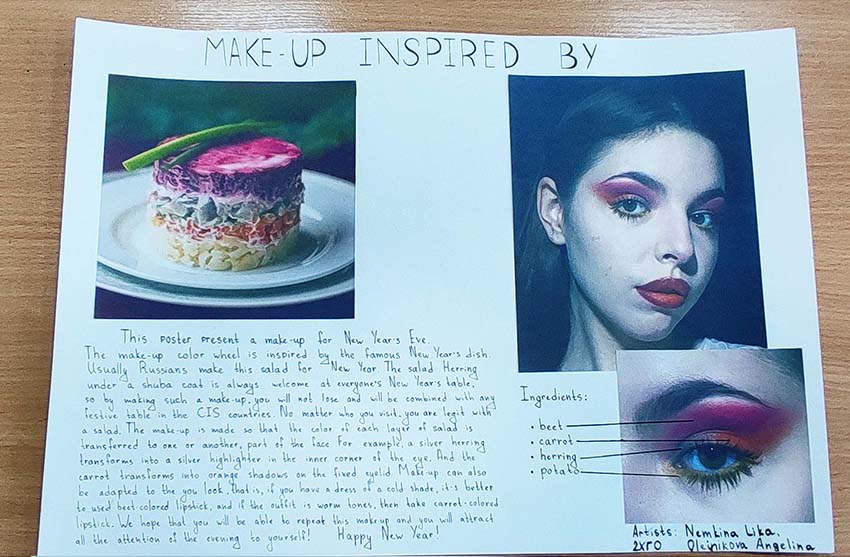 MAKE-UP INSPIRED BY
This poster present a make-up for New Year's Eve.
The make-up color wheel is inspired by the famous New Year's dish.
Usually Russians make this salad for New Year The salad Herring
under a shuba coat is always welcome at everyone's New Year's table,
so by making such a make-up, you will not lose and will be combined with any
festive table in the CIS countries. No matter who you visit, you are legit with
a salad. The make-up is made so that the color of each layer of salad is
transferred to one or another, part of the face. For example, a silver herring
transforms into a silver highlighter in the inner corner of the eye. And the
carrot transforms into orange shadows on the fixed eyelid. Make-up can also
be adapted to the you look, that is, if you have a dress of a cold shade, it's better
to used beet-colored lipstick, and if the outfit is warm tones, then take carrot-colored
lipstick. We hope that you will be able to repeat this make-up and you will attract
all the attention of the evening to yourself! Happy New Year!
Ingredients:
• beet
• carrot
• herring
• potato
Artists: Nemkina Lika,
2ХГО Olejnikova Angelina